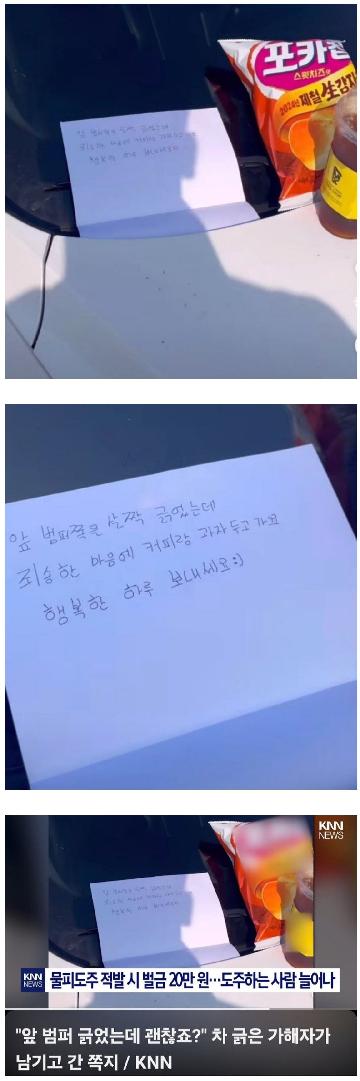 포카칩
스윗치즈맛
2024년 제철 生감자
앞 범퍼쪽을 살짝 긁었는데
죄송한 마음에 커피랑 과자 두고 가요
행복한 하루 보내세요:)
KNN
NEWS
KNN
NEWS
물피도주 적발 시 벌금 20만 원…도주하는 사람 늘어나
"앞 범퍼 긁었는데 괜찮죠?" 차 긁은 가해자가
남기고 간 쪽지 / KNN